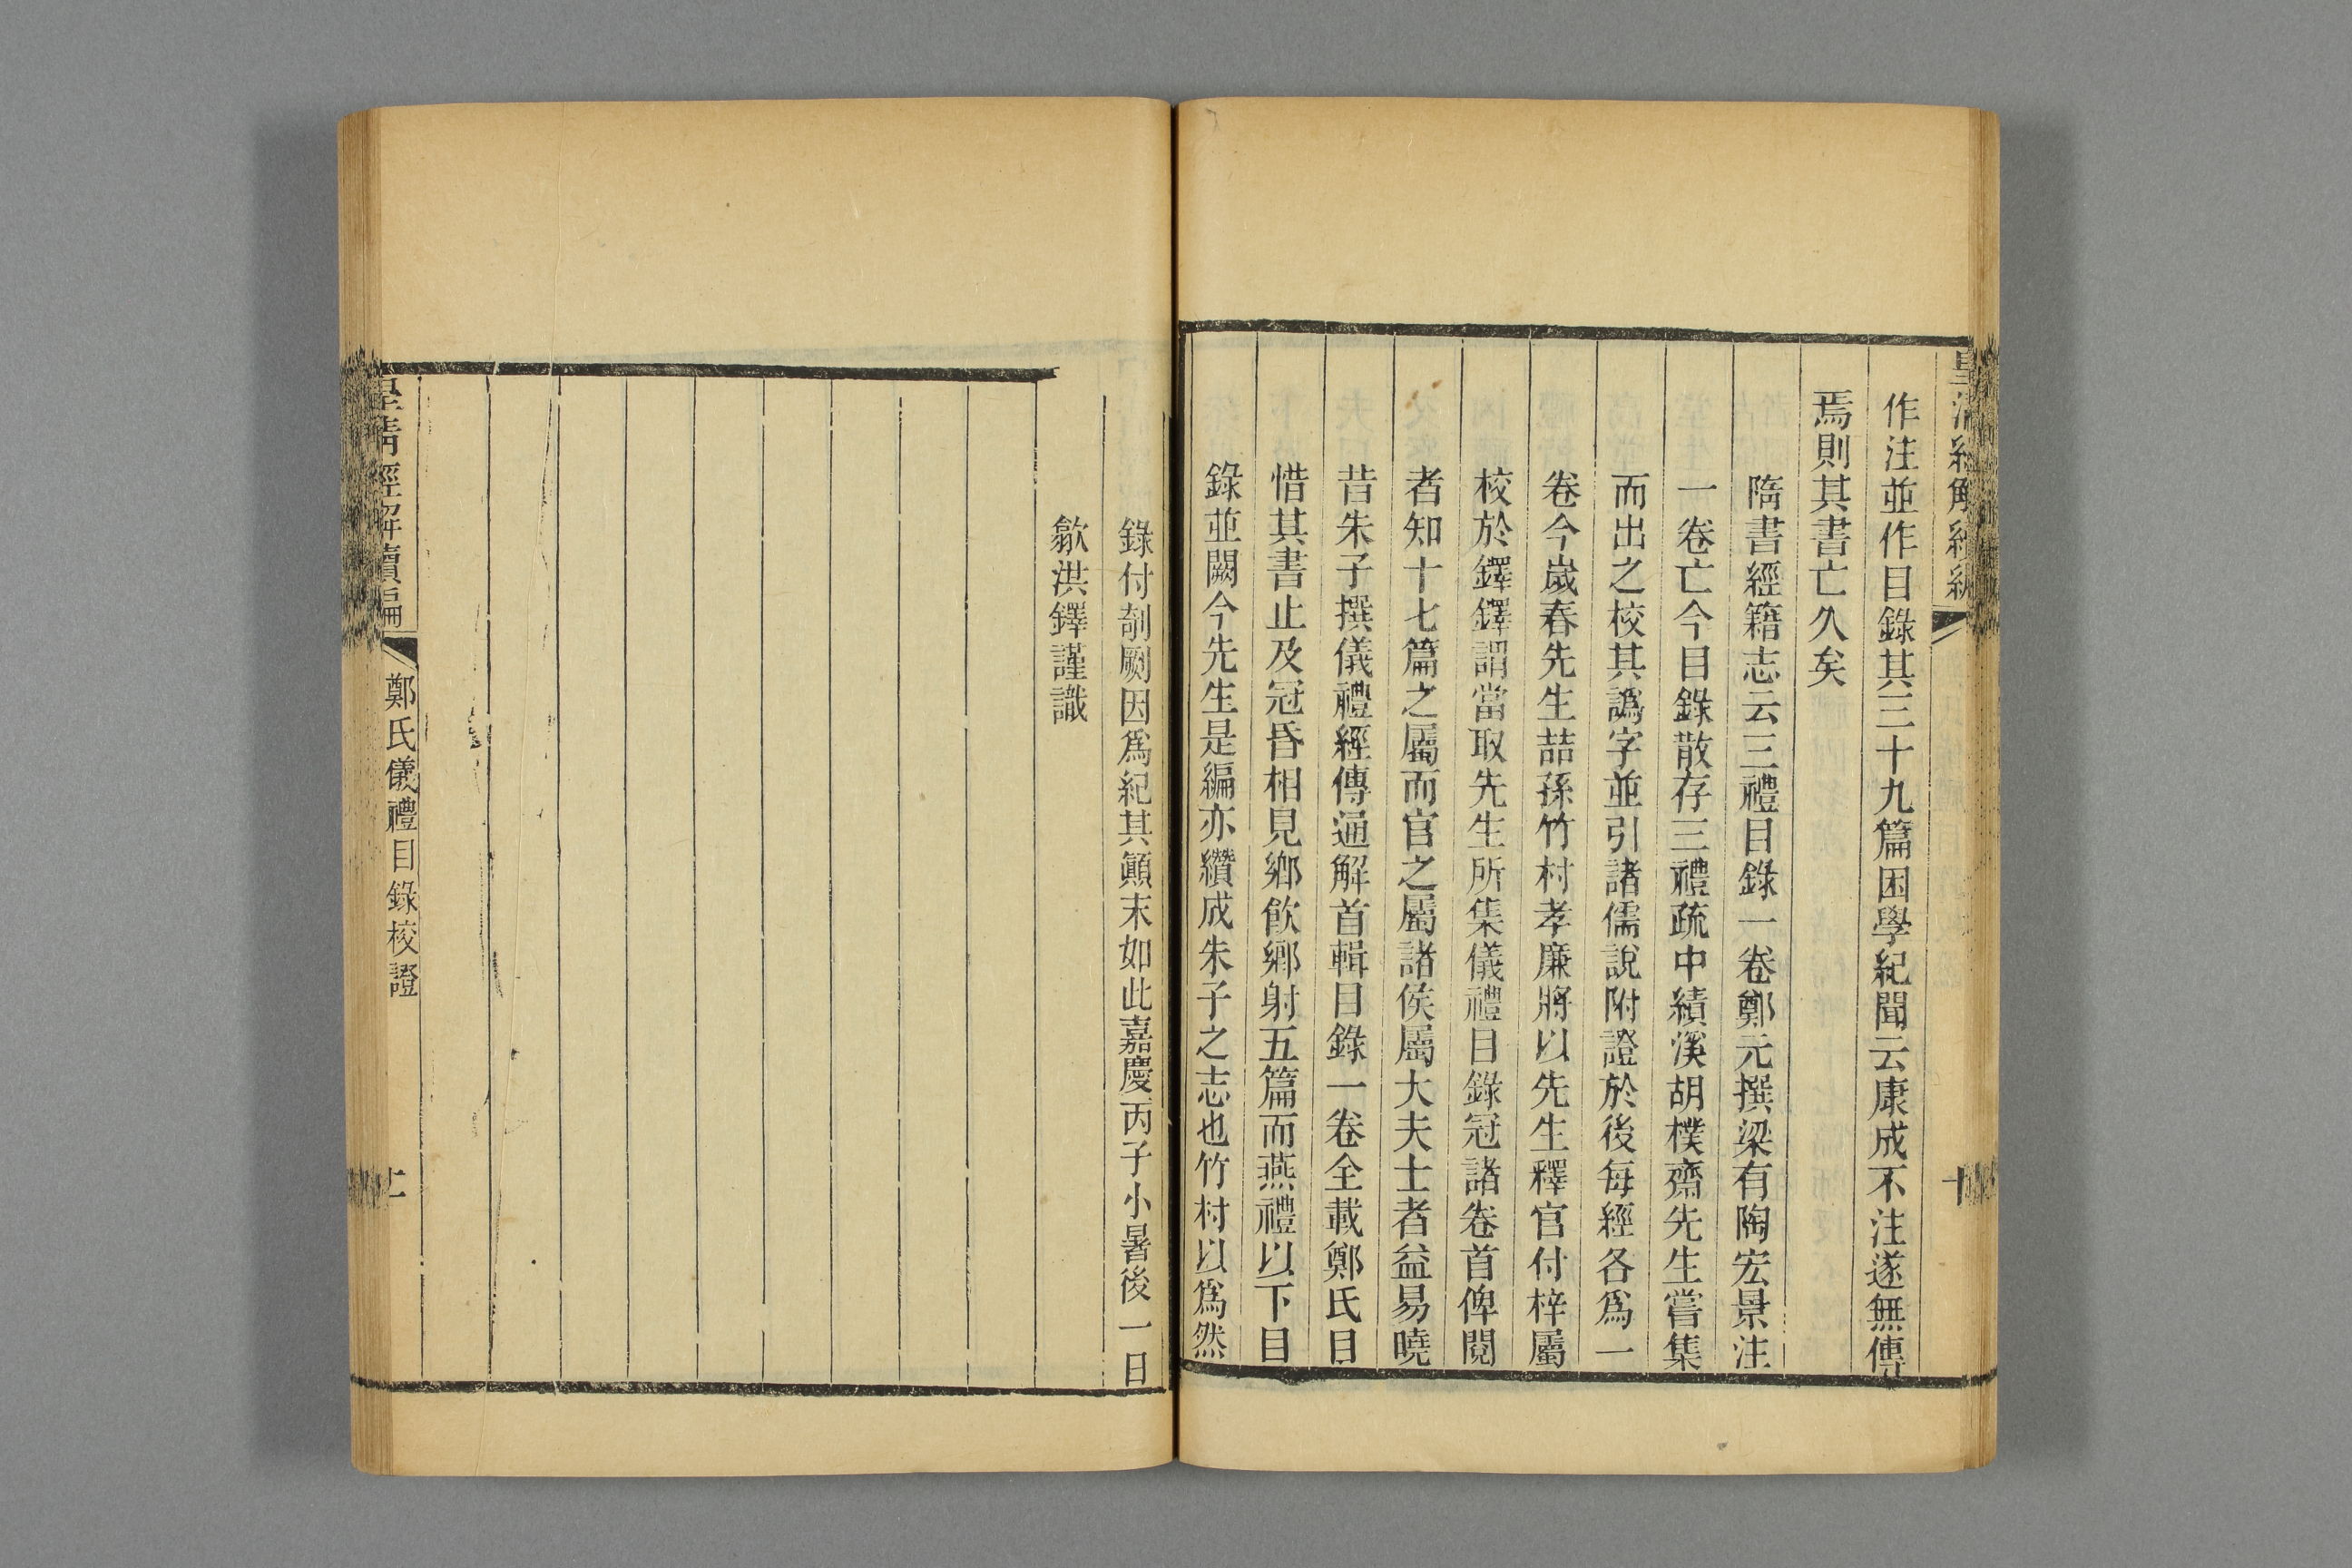 皇清經解續編
作注並作目錄其三十九篇困學紀聞云康成不注遂無傳
焉則其書亡久矣
隋書經籍志云三禮目錄一卷鄭元撰梁有陶宏景注
一卷亡今目錄散存三禮疏中績溪胡樸齋先生嘗集
而出之校其譌字並引諸儒說附證於後每經各爲一
卷今歲春先生喆孫竹村孝廉將以先生釋官付梓屬
校於鐸鐸謂當取先生所集儀禮目錄冠諸卷首俾閱
者知十七篇之屬而官之屬諸侯屬大夫士者益易曉
昔朱子撰儀禮經傳通解首輯目錄一卷全載鄭氏目
惜其書止及冠昏相見鄉飮鄉射五篇而燕禮以下目
錄並闕今先生是編亦纘成朱子之志也竹村以爲然
錄付剞劂因爲紀其顚末如此嘉慶丙子小暑後一日
歙洪鐸謹識
皇清經解續編
鄭氏儀禮目錄校證